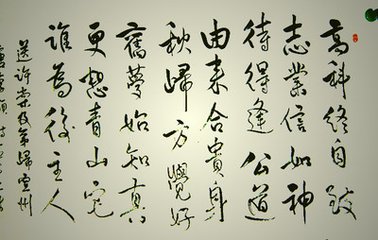 高科終自致
志業信如神
待得逢公道
由来合貴身
秋歸方覺好
舊夢始知真
更想青山宅
誰為後主人
送許棠及第歸宣州